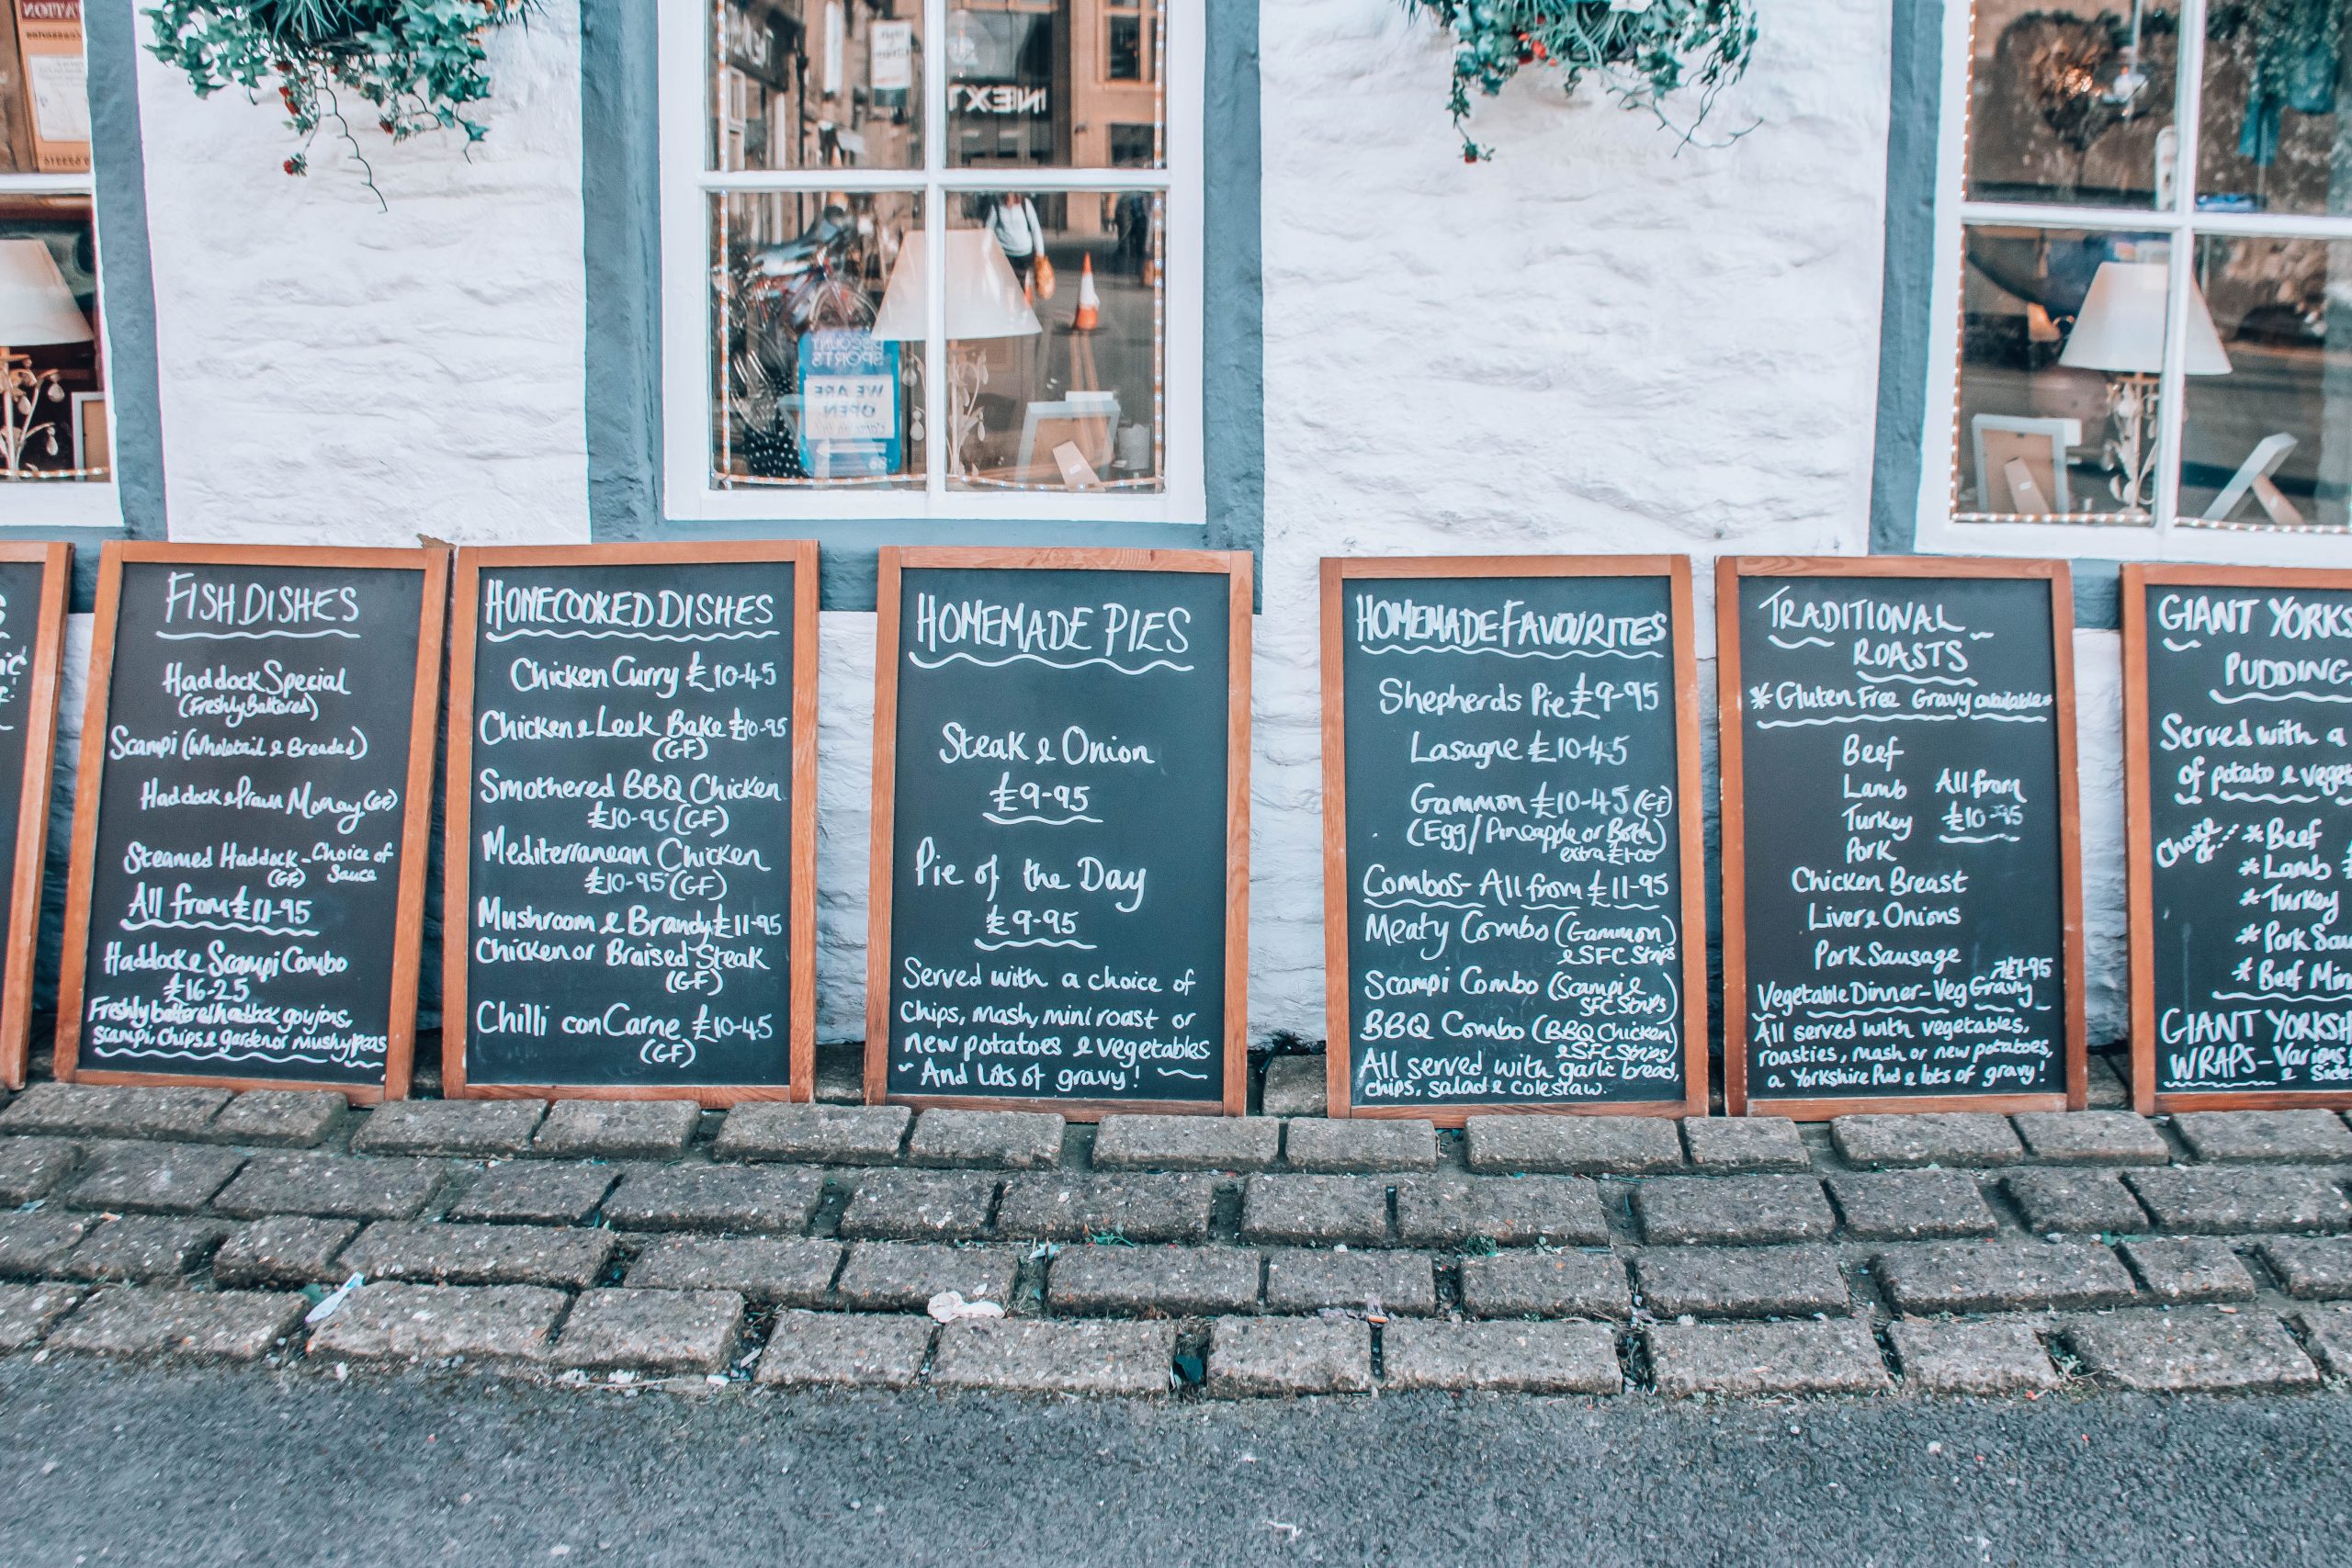 FISH DISHES
Haddock Special
(Freshly Battered)
Scampi (Wholetail & Breaded)
Haddock & Prawn Mornay (GF)
Steamed Haddock - Choice of
(GF) Sauce
All from £11-95
Haddock & Scampi Combo
£16-25
Freshly battered haddock goujons,
scampi, chips & garden or mushy peas
HOMECOOKED DISHES
Chicken Curry £10-45
Chicken & Leek Bake £10-95
(GF)
Smothered BBQ Chicken
£10-95 (GF)
Mediterranean Chicken
£10-95 (GF)
Mushroom & Brandy £11-95
Chicken or Braised Steak
(GF)
Chilli con Carne £10-45
(GF)
HOMEMADE PIES
Steak & Onion
£9-95
Pie of the Day
£9-95
Served with a choice of
Chips, mash, mini roast or
new potatoes & vegetables
And lots of gravy!
HOMEMADE FAVOURITES
Shepherds Pie £9-95
Lasagne £10-45
Gammon £10-45 (GF)
(Egg/Pineapple or Both)
extra £1-00
Combos - All from £11-95
Meaty Combo (Gammon)
& SFC Strips
Scampi Combo (Scampi &
SFC Strips)
BBQ Combo (BBQ Chicken)
& SFC Strips)
All served with garlic bread,
chips, salad & coleslaw.
TRADITIONAL
ROASTS
* Gluten Free Gravy available *
Beef
Lamb All from
Turkey £10-95
Pork
Chicken Breast
Liver & Onions
Pork Sausage
Vegetable Dinner - Veg Gravy
All served with vegetables,
roasties, mash or new potatoes,
a Yorkshire Pud & lots of gravy!
GIANT YORKS
PUDDING
Served with a
of potato & veget
Choice of: * Beef
* Lamb
* Turkey
* Pork Sau
* Beef Min
GIANT YORKSH
WRAPS - Various
& Side
NEXT
DISCOUNT
SPORTS
WE ARE
OPEN